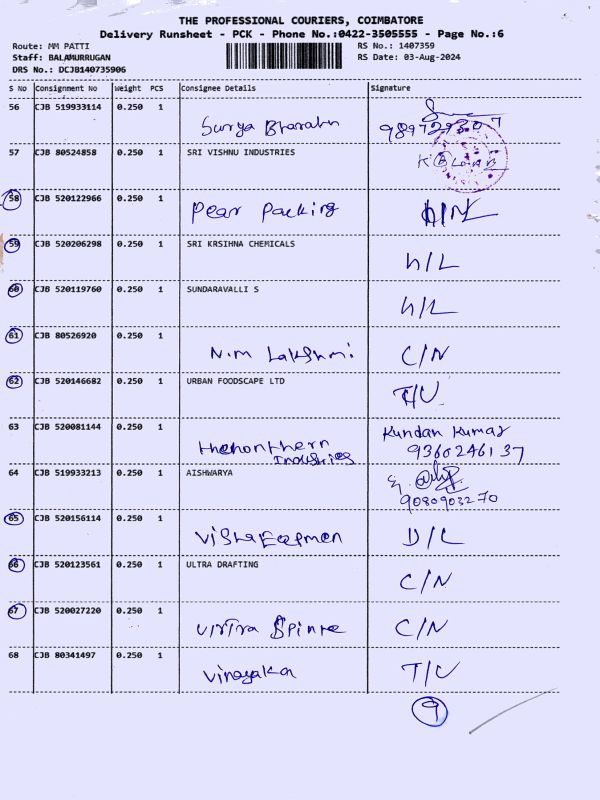 THE PROFESSIONAL COURIERS, COIMBATORE
Delivery Runsheet - PCK - Phone No.:0422-3505555 - Page No.:6
Route: MM PATTI RS No.: 1407359
Staff: BALAMURRUGAN RS Date: 03-Aug-2024
DRS No.: DCJB140735906
S No Consignment No Weight PCS Consignee Details Signature
56 CJB 519933114 0.250 1
Surya Bharath
57 CJB 80524858 0.250 1 SRI VISHNU INDUSTRIES
58 CJB 520122966 0.250 1
Pear Packing
59 CJB 520206298 0.250 1 SRI KRSIHNA CHEMICALS
h/L
60 CJB 520119760 0.250 1 SUNDARAVALLI S
h/L
61 CJB 80526920 0.250 1
N.M Lakshmi C/N
62 CJB 520146682 0.250 1 URBAN FOODSCAPE LTD
T/U
63 CJB 520081144 0.250 1 Kundan Kumar
Industries 9360246137
64 CJB 519933213 0.250 1 AISHWARYA
9080903270
65 CJB 520156114 0.250 1
D/L
66 CJB 520123561 0.250 1 ULTRA DRAFTING
C/N
67 CJB 520027220 0.250 1
C/N
68 CJB 80341497 0.250 1
Vinayaka T/U
9